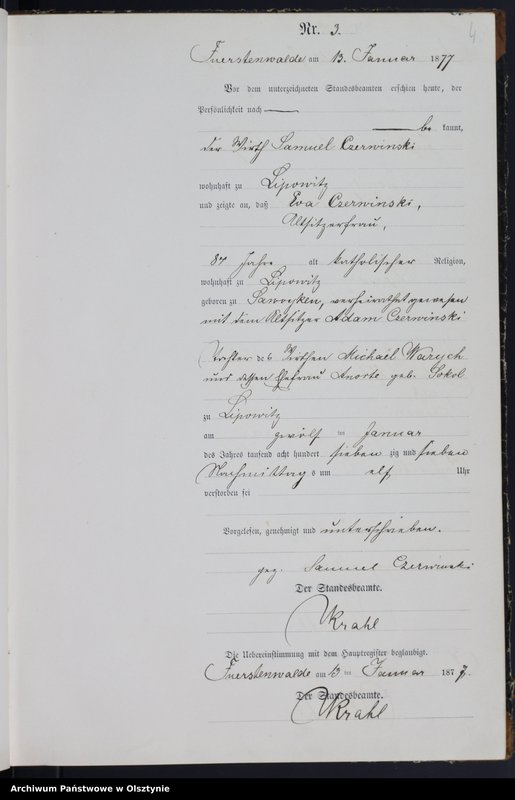 Nr. 3.
4
Fuerstenwalde am 13. Januar 1877
Vor dem unterzeichneten Standesbeamten erschien heute, der
Persönlichkeit nach
be kannt,
der Wirth Samuel Czerwinski
wohnhaft zu Lipowitz
und zeigte an, daß Eva Czerwinski,
Altsitzerfrau,
87 Jahre alt katholischer Religion,
wohnhaft zu Lipowitz
geboren zu verheirathet gewesen
mit dem Altsitzer Adam Czerwinski
Tochter des Wirthen Michael Warych
und dessen Ehefrau Anorte geb. Sokol
zu Lipowitz
am zwölf ten Januar
des Jahres tausend acht hundert sieben zig und sieben
Nachmittag s um elf Uhr
verstorben sei
Vorgelesen, genehmigt und unterschrieben.
gez. Samuel Czerwinski
Der Standesbeamte.
Krahl
Die Uebereinstimmung mit dem Hauptregister beglaubigt.
Fuerstenwalde am 13 ten Januar 1877.
Der Standesbeamte.
Krahl
Archiwum Państwowe w Olsztynie